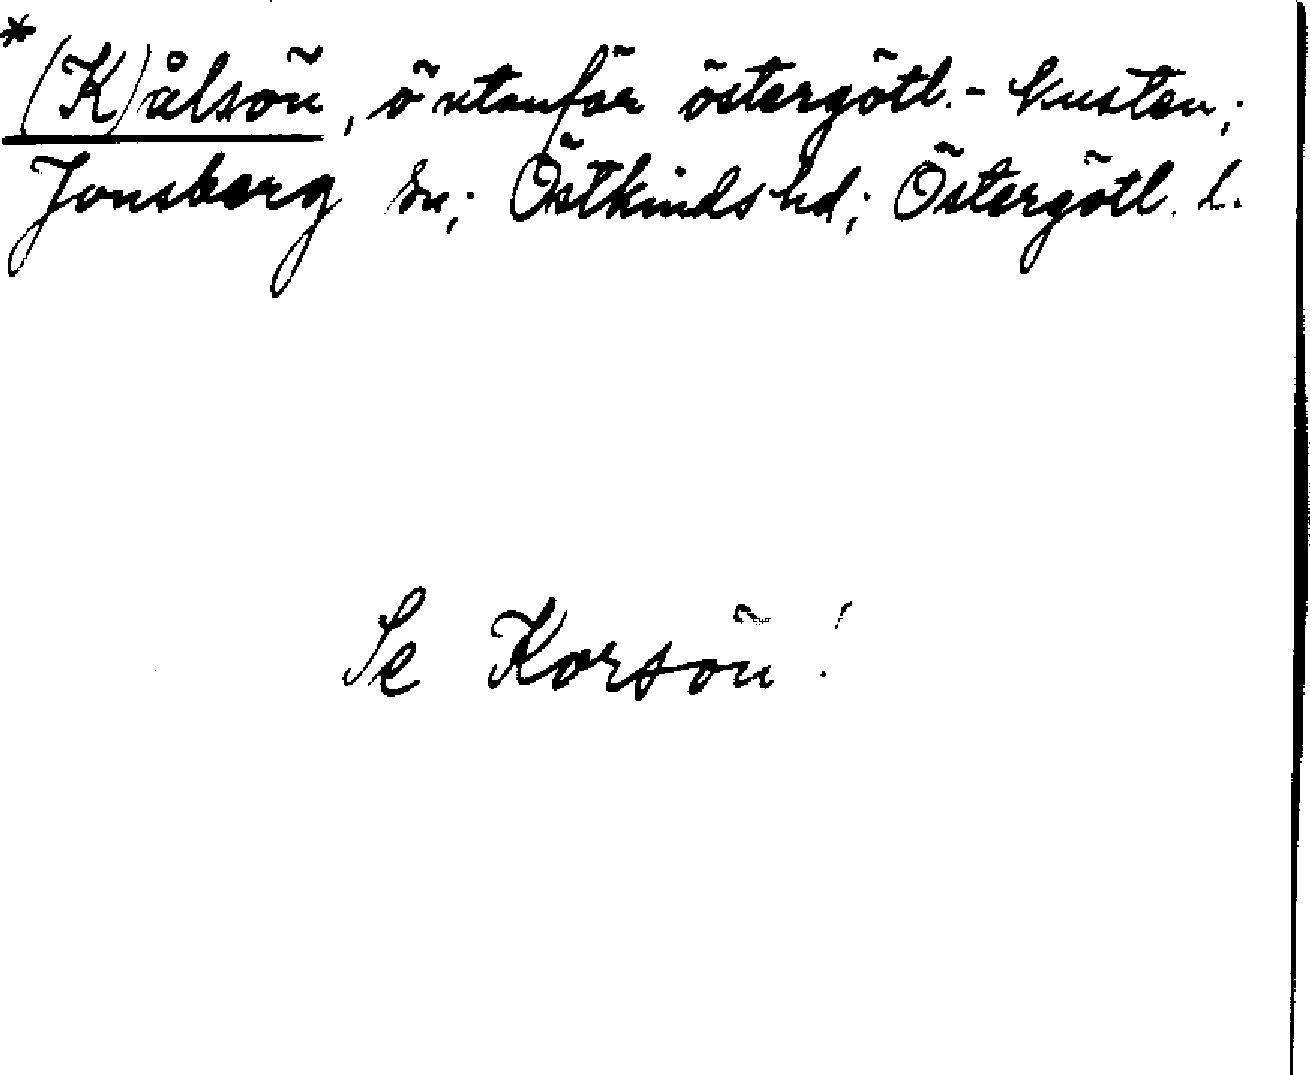 * (K)ålsön, ö utanför östergötl.-kusten;
Jonsberg sn; Östkinds hd; Östergötl. l.
Se Korsön!